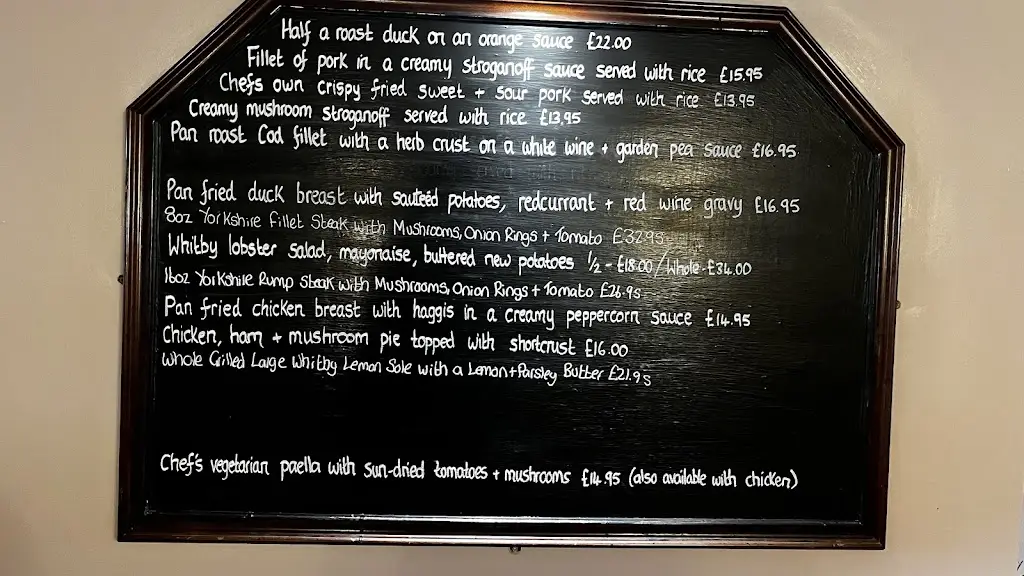 Half a roast duck on an orange sauce £22.00
Fillet of pork in a creamy stroganoff sauce served with rice £15.95
Chefs own crispy fried sweet + sour pork served with rice £13.95
Creamy mushroom stroganoff served with rice £13.95
Pan roast Cod fillet with a herb crust on a white wine + garden pea sauce £16.95
Pan fried duck breast with sauteéd potatoes, redcurrant + red wine gravy £16.95
8oz Yorkshire Fillet Steak with Mushrooms, Onion Rings + Tomato £32.95
Whitby lobster salad, mayonaise, buttered new potatoes 1/2 - £18.00 / Whole - £34.00
16oz Yorkshire Rump Steak with Mushrooms, Onion Rings + Tomato £26.95
Pan fried chicken breast with haggis in a creamy peppercorn sauce £14.95
Chicken, ham + mushroom pie topped with shortcrust £16.00
Whole Grilled Large Whitby Lemon Sole with a Lemon + Parsley Butter £21.95
Chef's vegetarian paella with sun-dried tomatoes + mushrooms £14.95 (also available with chicken)